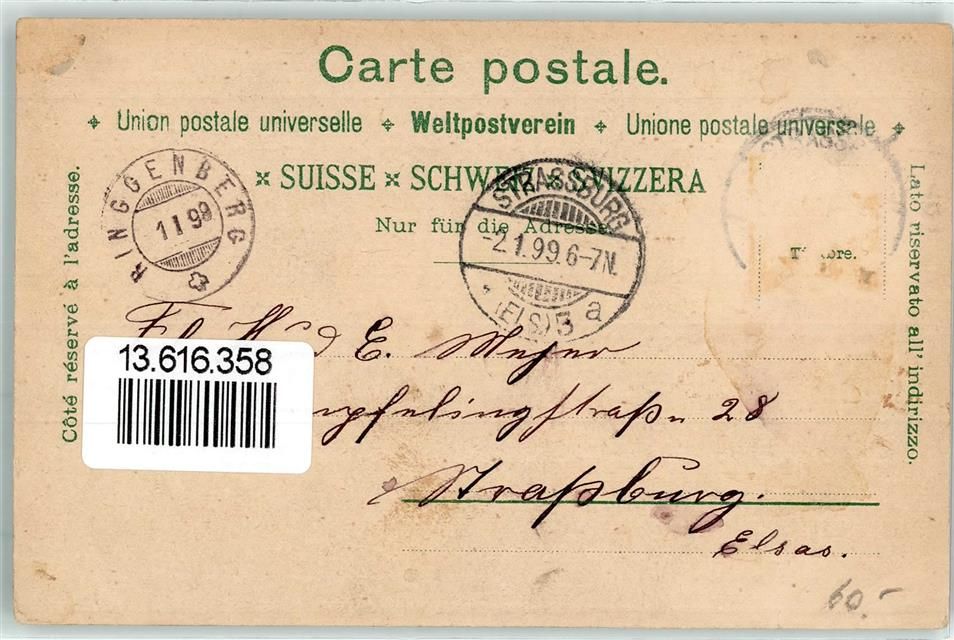 Carte postale.
Union postale universelle Weltpostverein Unione postale universale
SUISSE × SCHWEIZ × SVIZZERA
Nur für die Adresse.
Côté réservé à l'adresse.
Lato riservato all' indirizzo.
RINGGENBERG
1 I 99
STRASSBURG
-2.1.99.6-7N.
(ELS) 5 a
STRASSB
13.616.358
E. Meyer
mpfelingstraße 28
Straßburg.
Elsas.
60.-